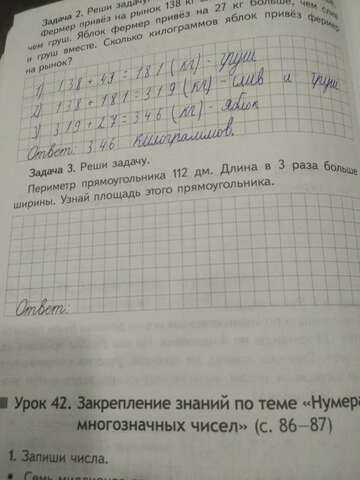 Задача 2. Реши задачу.
Фермер привёз на рынок 138 кг
чем груш. Яблок фермер привёз на 27 кг больше, чем слив
и груш вместе. Сколько килограммов яблок привёз фермер
на рынок?
1) 138 + 43 = 181 (кг) - груш
2) 138 + 181 = 319 (кг) - слив и груш
3) 319 + 27 = 346 (кг) - яблок
Ответ: 346 килограммов.
Задача 3. Реши задачу.
Периметр прямоугольника 112 дм. Длина в 3 раза больше
ширины. Узнай площадь этого прямоугольника.
Ответ:
Урок 42. Закрепление знаний по теме «Нумера
многозначных чисел» (с. 86—87)
1. Запиши числа.